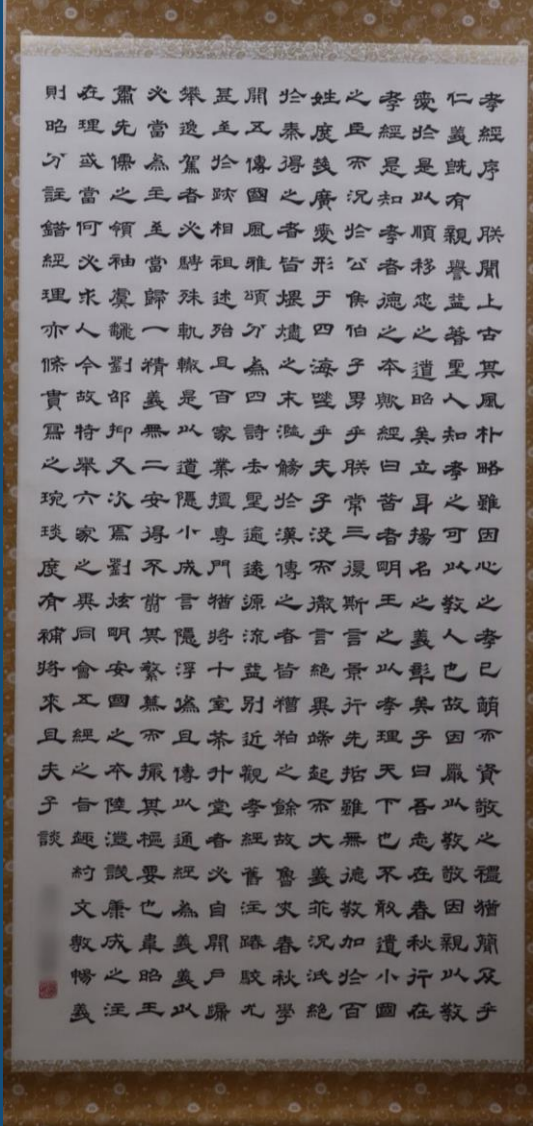 孝經序 朕聞上古其風朴略雖因心之孝已萌而資敬之禮猶簡及乎
仁義旣有 親譽益著聖人知孝之可以教人也故因嚴以教敬因親以教
愛於是以順移忠之道昭矣立身揚名之義彰矣子曰吾志在春秋行在
孝經是知孝者德之本歟經曰昔者明王之以孝理天下也不敢遺小國
之臣而況於公侯伯子男乎朕常三復斯言景行先哲雖無德教加於百
姓庶幾廣愛形于四海嗟乎夫子沒而微言絕異端起而大義乖況泯絕
於秦得之者皆煨燼之末濫觴於漢傳之者皆糟粕之餘故魯史春秋學
開五傳國風雅頌分為四詩去聖逾遠源流益別近觀孝經舊注踳駮尤
甚至於跡相祖述殆且百家業擅專門猶將十室希升堂者必自開戶牖
攀逸駕者必騁殊軌轍是以道隱小成言隱浮偽且傳以通經為義義以
必當為主至當歸一精義無二安得不翦其繁蕪而撮其樞要也韋昭王
肅先儒之領袖虞翻劉邵抑又次焉劉炫明安國之本陸澄譏康成之注
在理或當何必求人今故特舉六家之異同會五經之旨趣約文敷暢義
則昭分註錯經理亦條貫寫之琬琰庶有補將來且夫子談